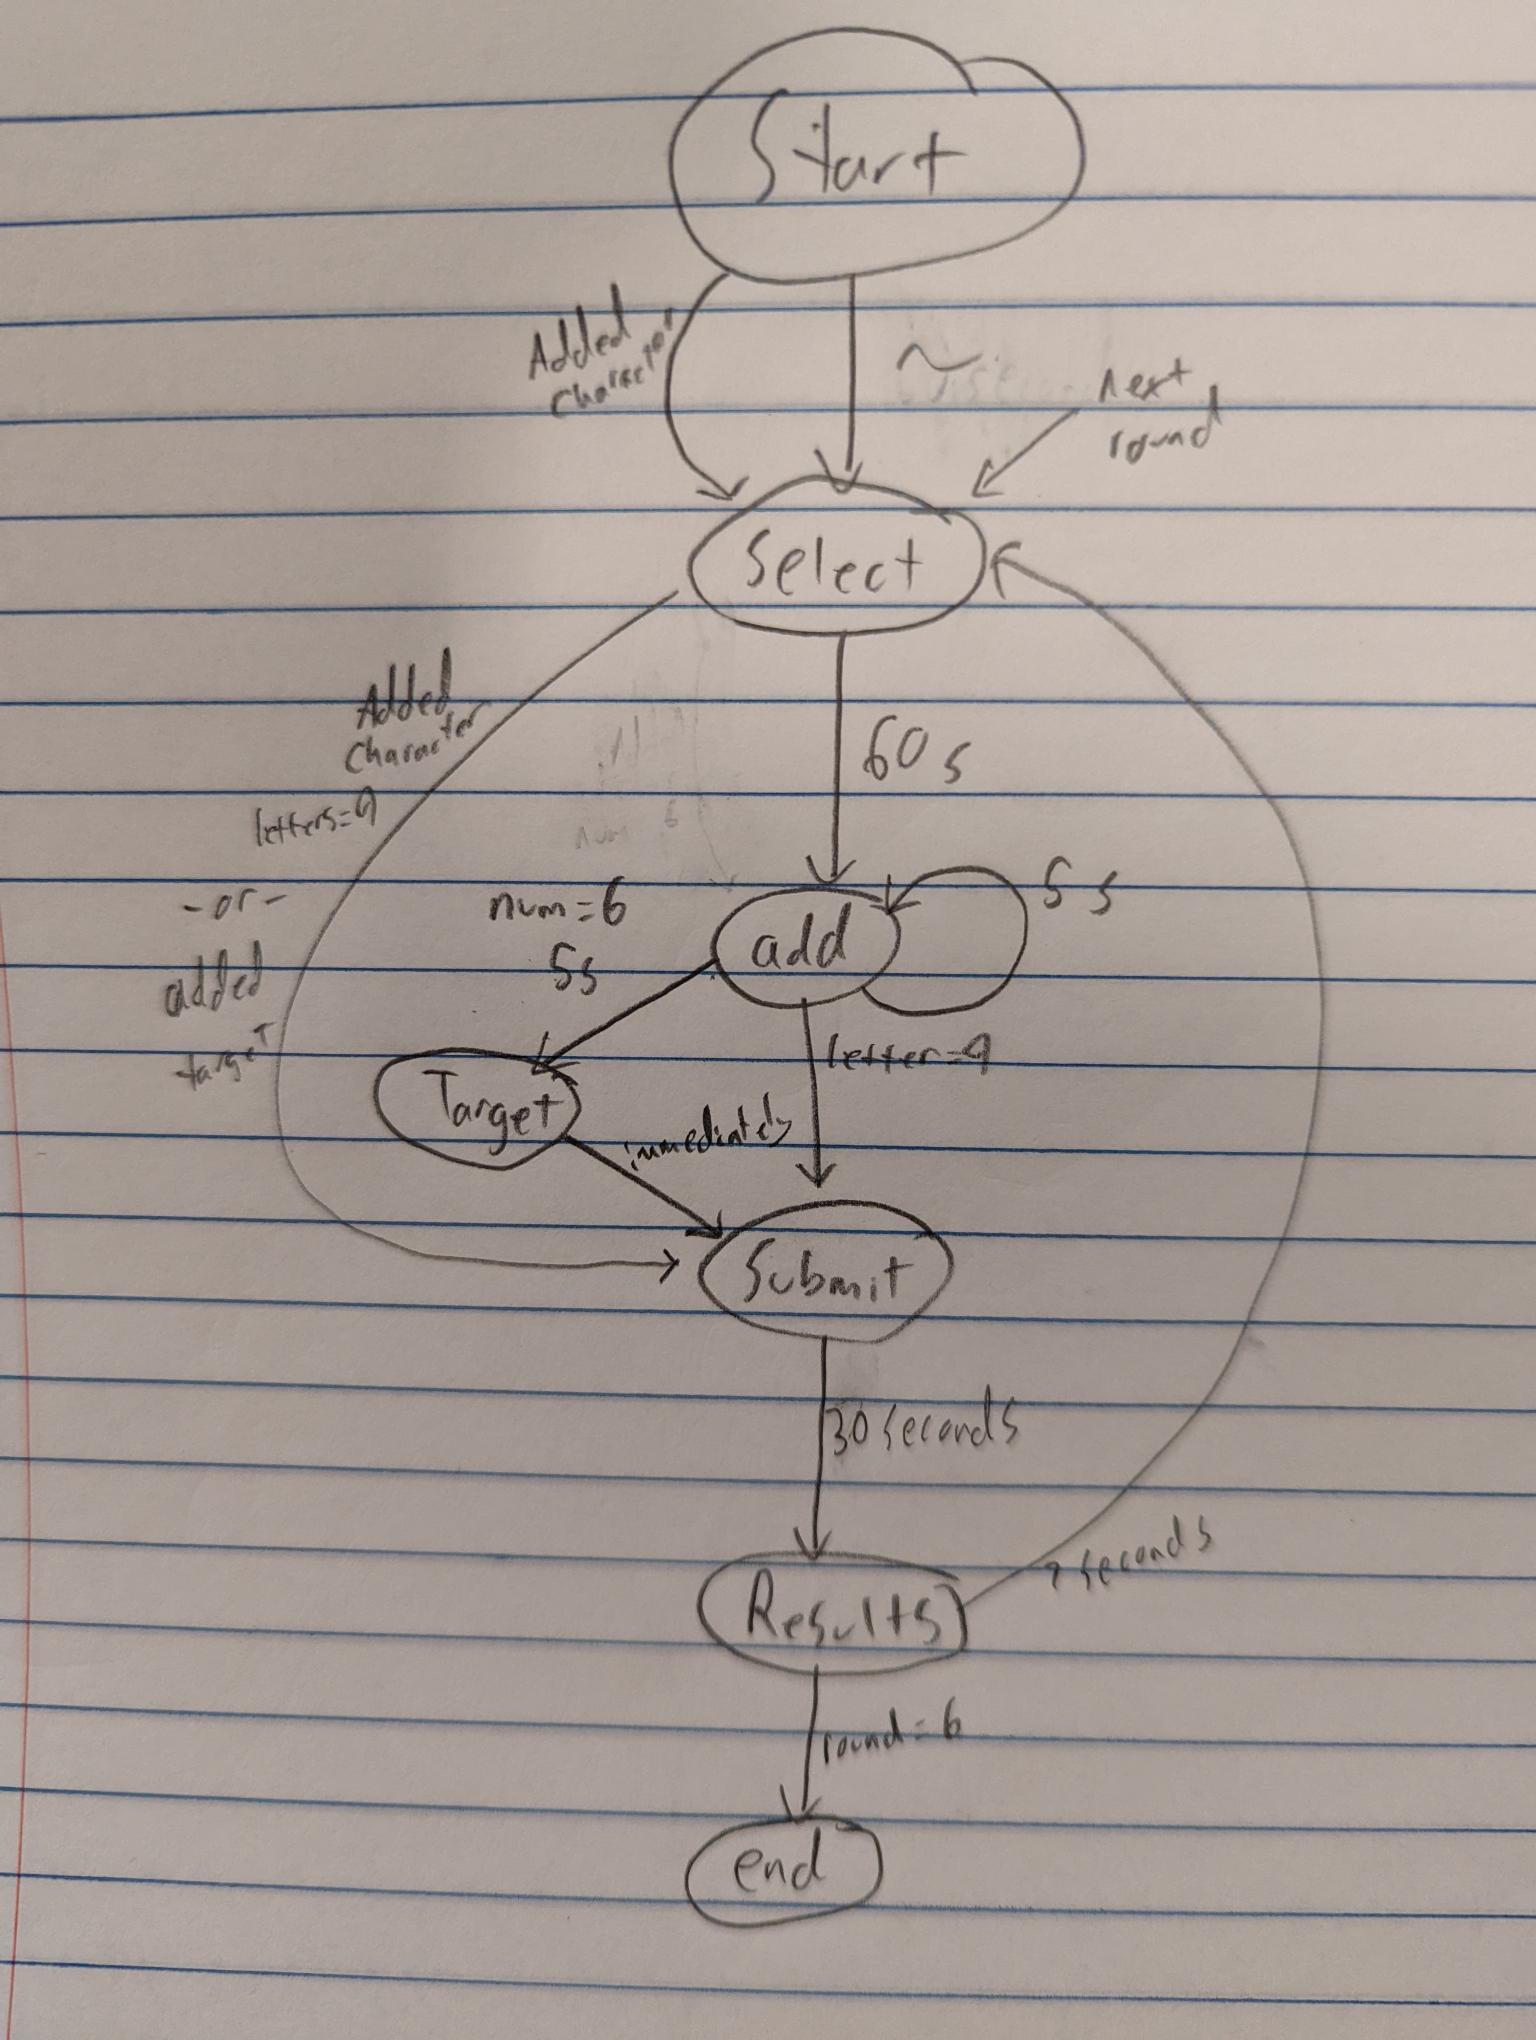 Start
Added
Character
~
next
round
Select
Added
Character
60 s
letters=9
-or-
added
target
num=6
5s
add
5 s
letter=9
Target
immediately
Submit
30 seconds
Results
? seconds
round=6
end